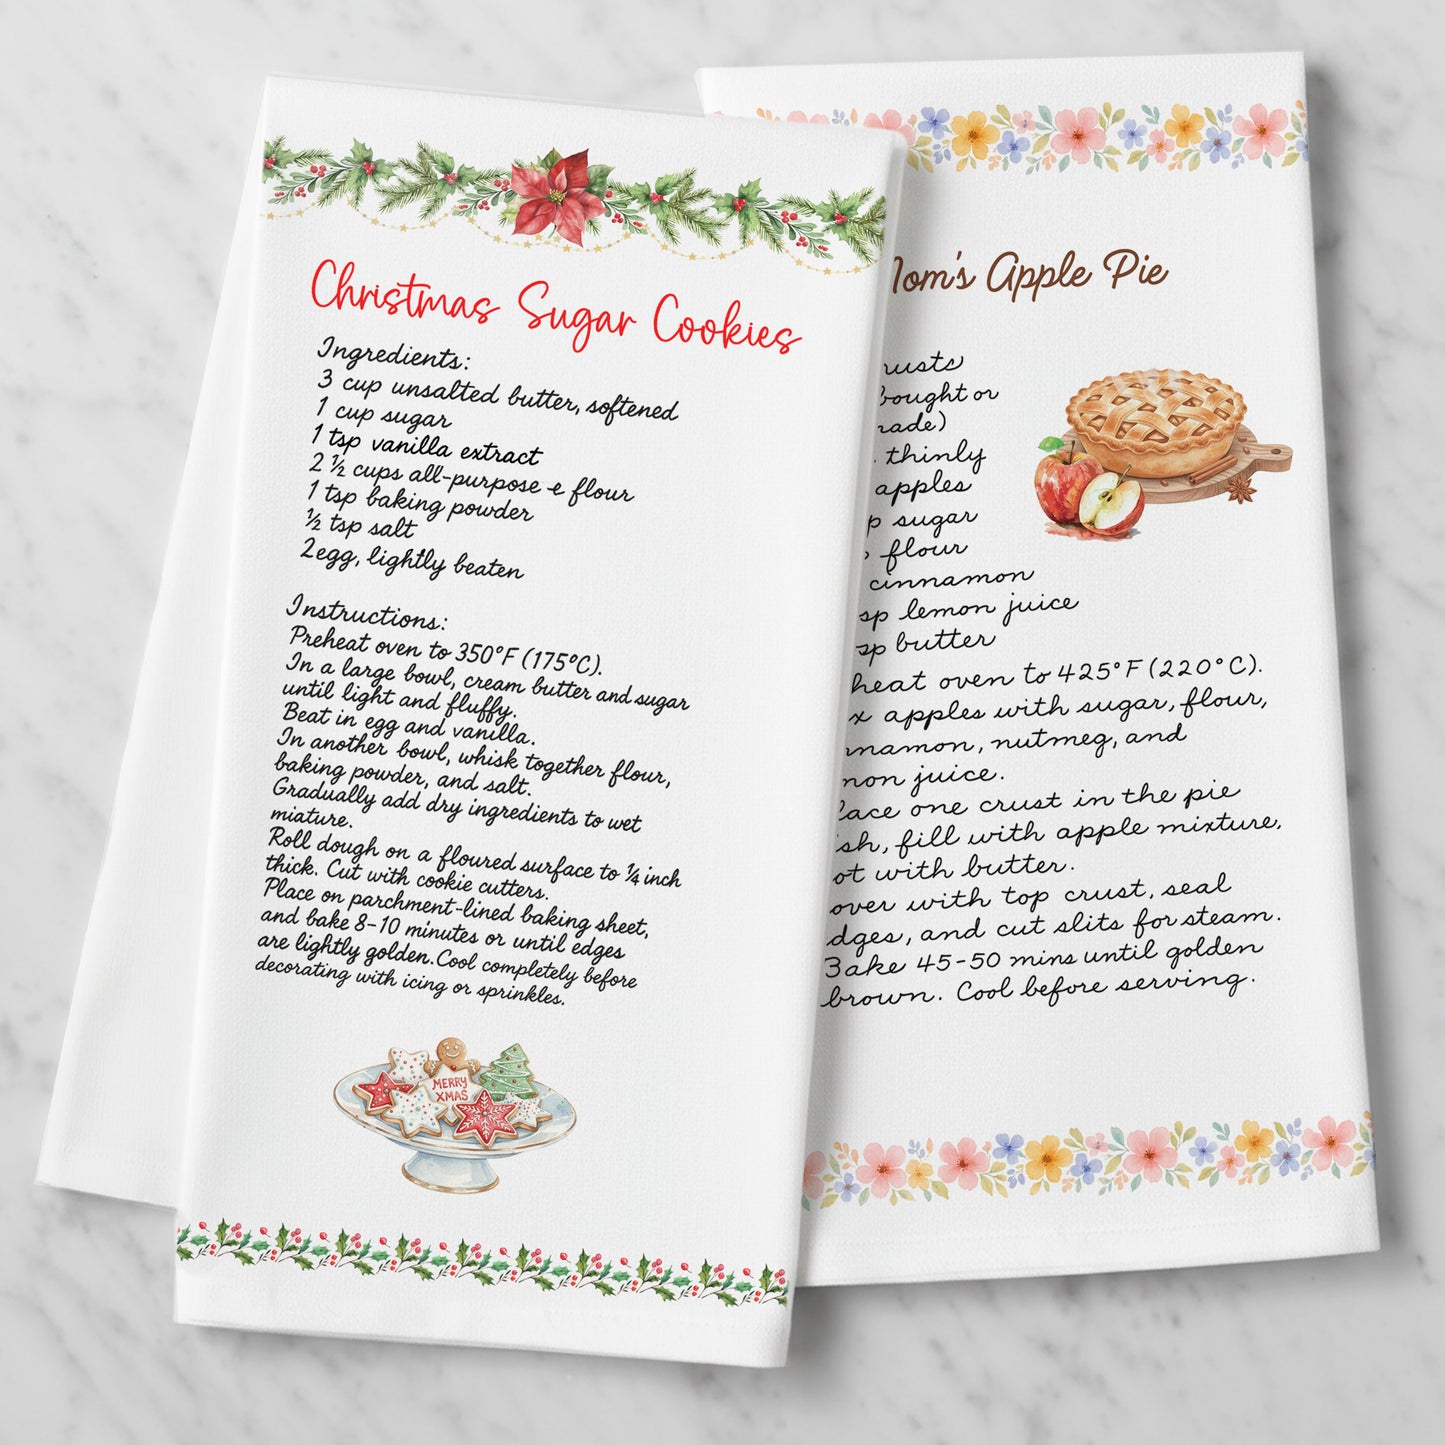 Christmas Sugar Cookies
Ingredients:
3 cup unsalted butter, softened
1 cup sugar
1 tsp vanilla extract
2 ½ cups all-purpose e flour
1 tsp baking powder
½ tsp salt
2egg, lightly beaten
Instructions:
Preheat oven to 350°F (175°C).
In a large bowl, cream butter and sugar
until light and fluffy.
Beat in egg and vanilla.
In another bowl, whisk together flour,
baking powder, and salt.
Gradually add dry ingredients to wet
miature.
Roll dough on a floured surface to ¼ inch
thick. Cut with cookie cutters.
Place on parchment-lined baking sheet,
and bake 8-10 minutes or until edges
are lightly golden. Cool completely before
decorating with icing or sprinkles.
MERRY
XMAS
Mom's Apple Pie
rusts
bought or
made)
thinly
apples
sugar
flour
cinnamon
sp lemon juice
sp butter
heat oven to 425°F (220°C).
x apples with sugar, flour,
nnamon, nutmeg, and
mon juice.
lace one crust in the pie
ish, fill with apple mixture,
ot with butter.
over with top crust, seal
dges, and cut slits for steam.
Bake 45-50 mins until golden
brown. Cool before serving.